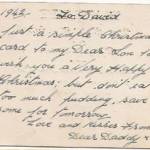 1942. To David
Just a simple Christmas
card to my Dear Son to
wish you a Very Happy
Christmas; but don't eat
too much pudding, save
some for tomorrow.
Love and kisses from
Dear Daddy x